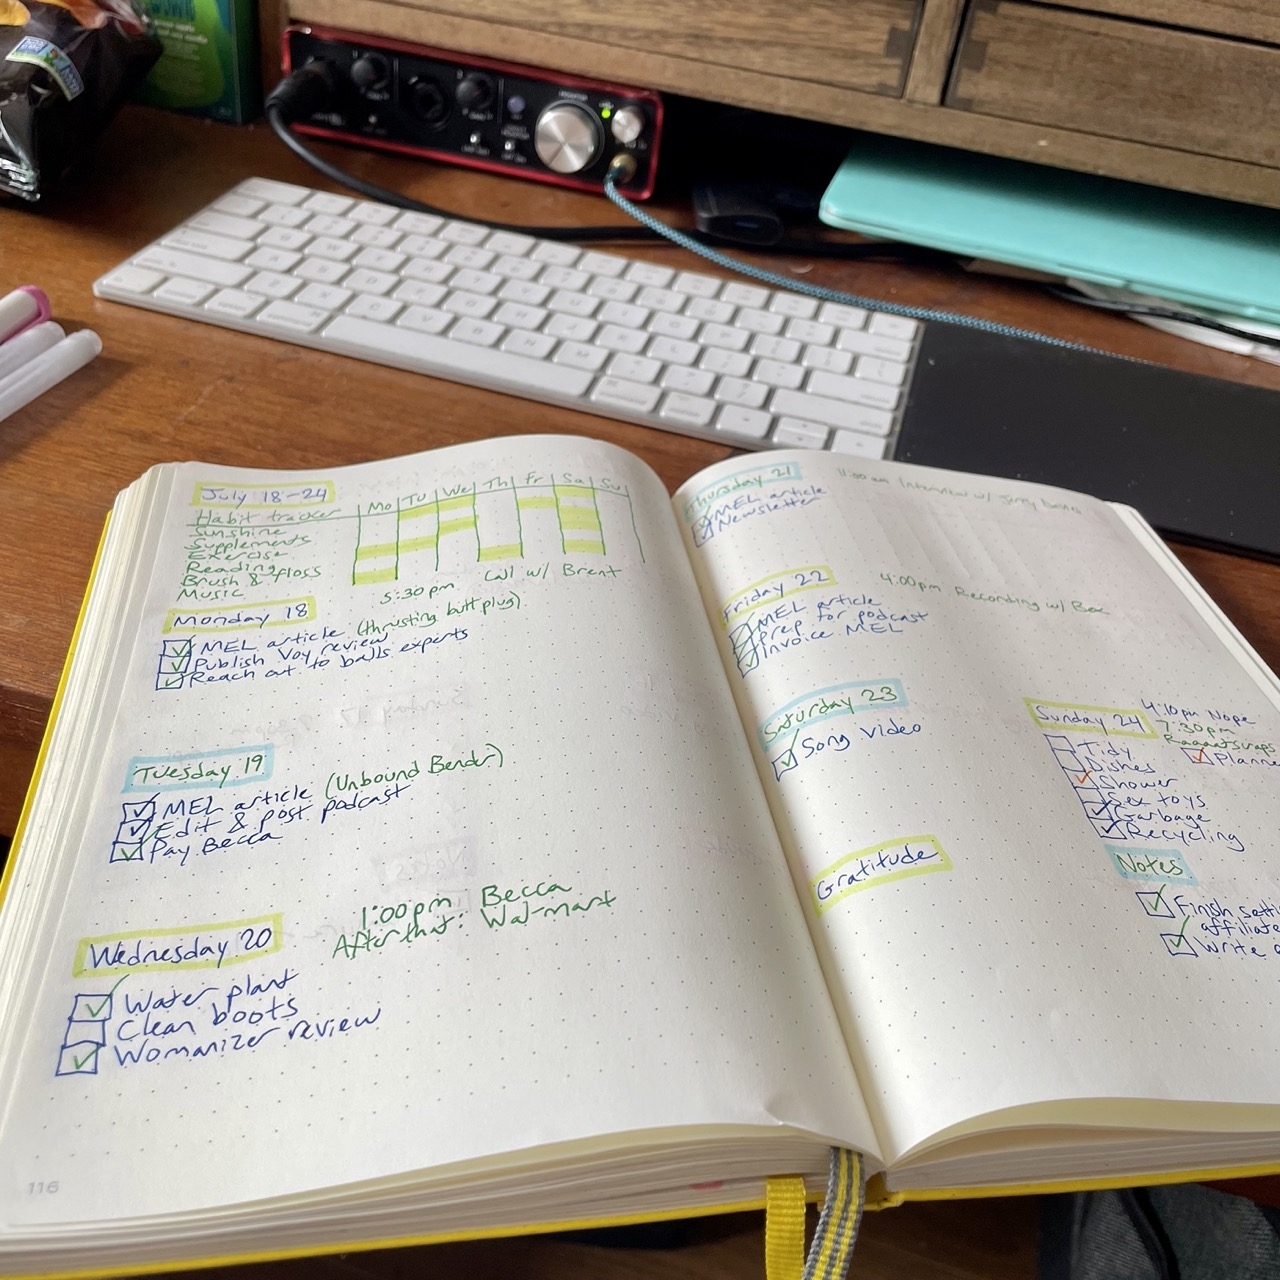 July 18-24
Mo Tu We Th Fr Sa Su
Habit tracker
Sunshine
Supplements
Exercise
Reading
Brush & floss
Music
Monday 18
5:30pm Call w/ Brent
MEL article (thrusting butt plug)
Publish Voy review
Reach out to balls experts
Tuesday 19
MEL article (Unbound Bender)
Edit & post podcast
Pay Becca
Wednesday 20
1:00pm Becca
After that: Wal-mart
Water plant
Clean boots
Womanizer review
116
Thursday 21
11:00am Interview w/
MEL article
Newsletter
Friday 22
4:00pm Recording w/ Bex
MEL article
Prep for podcast
Invoice MEL
Saturday 23
Song video
Sunday 24
4:10pm Nope
7:30pm
Tidy
Dishes
Shower
Sex toys
Garbage
Recycling
Gratitude
Notes
Finish
affiliate
Write